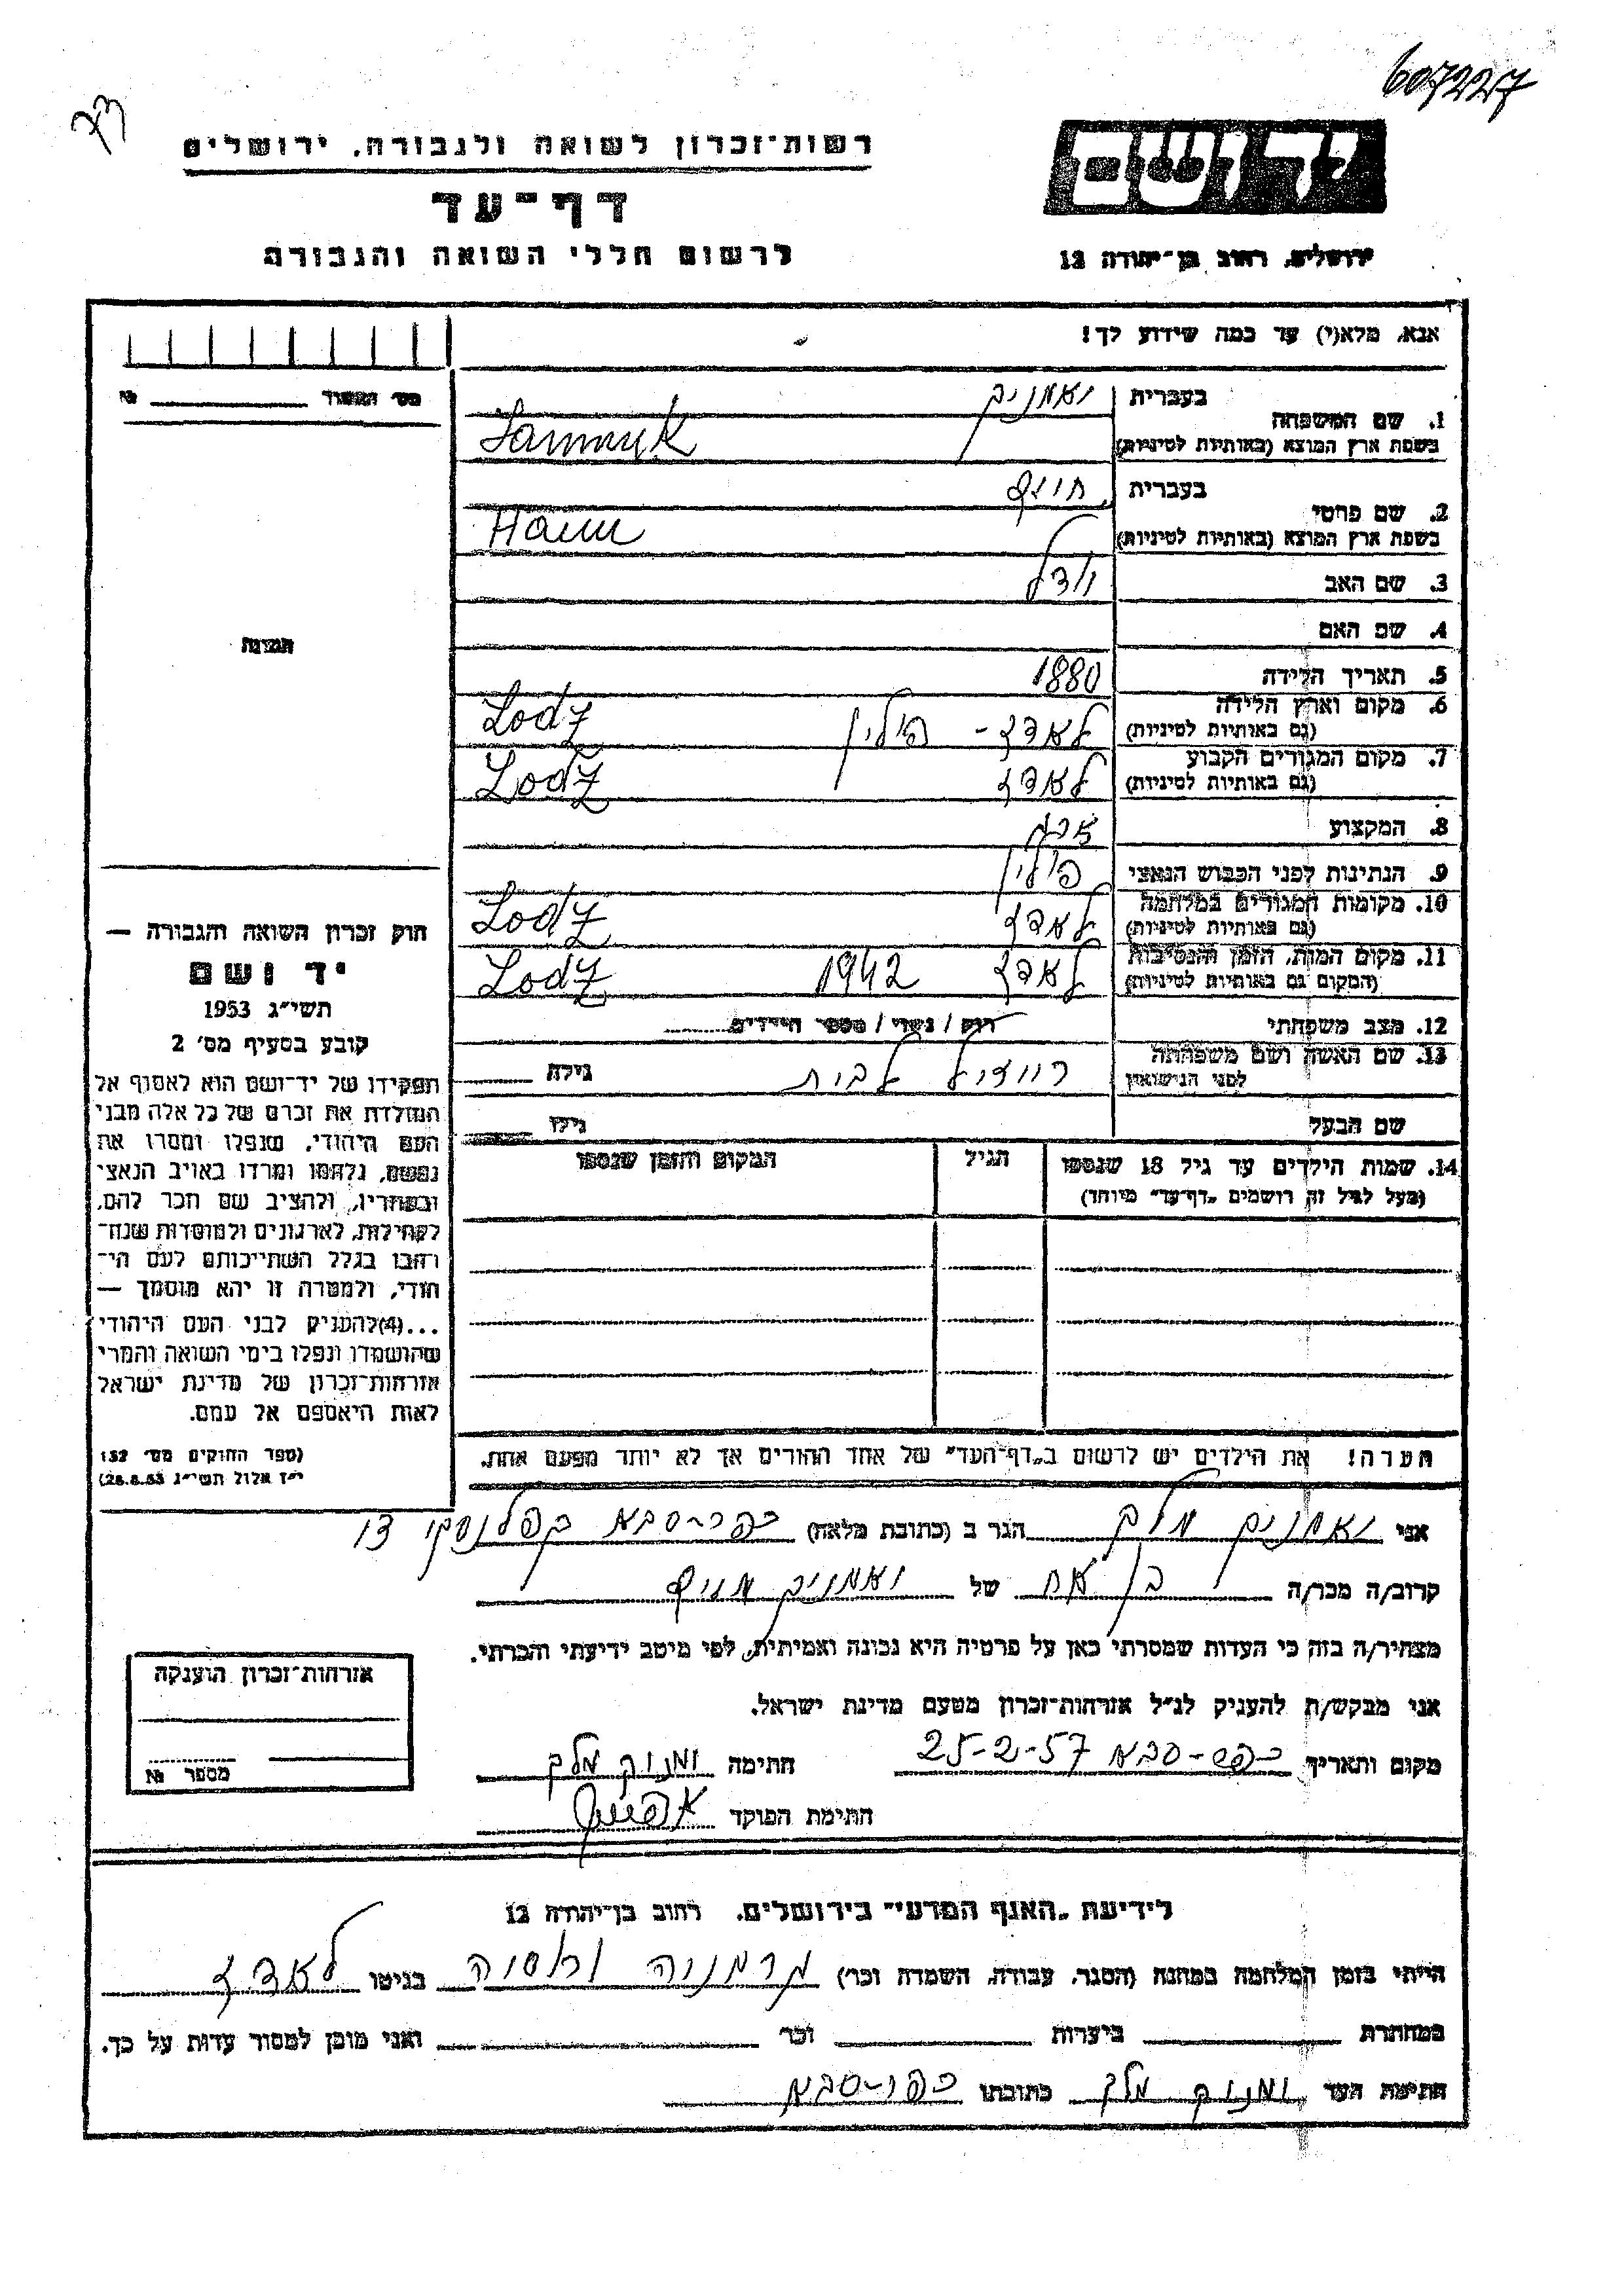 607227
רשות־זכרון לשואה ולגבורה, ירושלים
דף־עד
לרשום חללי השואה והגבורה
יד ושם
ירושלים, רחוב בן־יהודה 12
אנא, מלא(י) עד כמה שידוע לך!
1. שם המשפחה
בעברית
בשפת ארץ המוצא (באותיות לטיניות)
2. שם פרטי
בעברית
בשפת ארץ המוצא (באותיות לטיניות)
3. שם האב
4. שם האם
5. תאריך הלידה 1880
6. מקום וארץ הלידה
(גם באותיות לטיניות) לאדז - פולין Lodz
7. מקום המגורים הקבוע
(גם באותיות לטיניות) לאדז Lodz
8. המקצוע
9. הנתינות לפני הכבוש הנאצי פולין
10. מקומות המגורים במלחמה
(גם באותיות לטיניות) לאדז Lodz
11. מקום המות, הזמן והנסיבות
(המקום גם באותיות לטיניות) לאדז 1942 Lodz
12. מצב משפחתי רווק / נשוי / מספר הילדים
13. שם האשה ושם משפחתה
לפני הנישואין גילה
שם הבעל גילו
14. שמות הילדים עד גיל 18 שנספו
(מעל לגיל זה רושמים „דף־עד" מיוחד)
הגיל
המקום והזמן שנספו
הערה! את הילדים יש לרשום ב„דף־העד" של אחד ההורים אך לא יותר מפעם אחת.
מס' המשפחה №
תמונה
חוק זכרון השואה והגבורה —
יד ושם
תשי"ג 1953
קובע בסעיף מס' 2
תפקידו של יד־ושם הוא לאסוף אל
המולדת את זכרם של כל אלה מבני
העם היהודי, שנפלו ומסרו את
נפשם, נלחמו ומרדו באויב הנאצי
ובעוזריו, ולהציב שם וזכר להם,
לקהילות, לארגונים ולמוסדות שנח־
רבו בגלל השתייכותם לעם הי־
הודי, ולמטרה זו יהא מוסמך —
...(4) להעניק לבני העם היהודי
שהושמדו ונפלו בימי השואה והמרי
אזרחות־זכרון של מדינת ישראל
לאות היאספם אל עמם.
(ספר החוקים מס' 132
י"ז אלול תשי"ג 28.8.53)
אני הגר ב (כתובת מלאה) כפר-סבא
קרוב/ה מכר/ה בן אח של
מצהיר/ה בזה כי העדות שמסרתי כאן על פרטיה היא נכונה ואמיתית, לפי מיטב ידיעתי והכרתי.
אני מבקש/ת להעניק לנ"ל אזרחות־זכרון מטעם מדינת ישראל.
מקום ותאריך כפר-סבא 25-2-57 חתימה
חתימת הפוקד
אזרחות־זכרון הוענקה
מספר №
לידיעת „האגף המדעי" בירושלים, רחוב בן־יהודה 12
הייתי בזמן המלחמה במחנה (הסגר, עבודה, השמדה וכו') גרמניה בגיטו לאדז
במחתרת ביערות וכו' ואני מוכן למסור עדות על כך.
חתימת העד כתובתו כפר-סבא